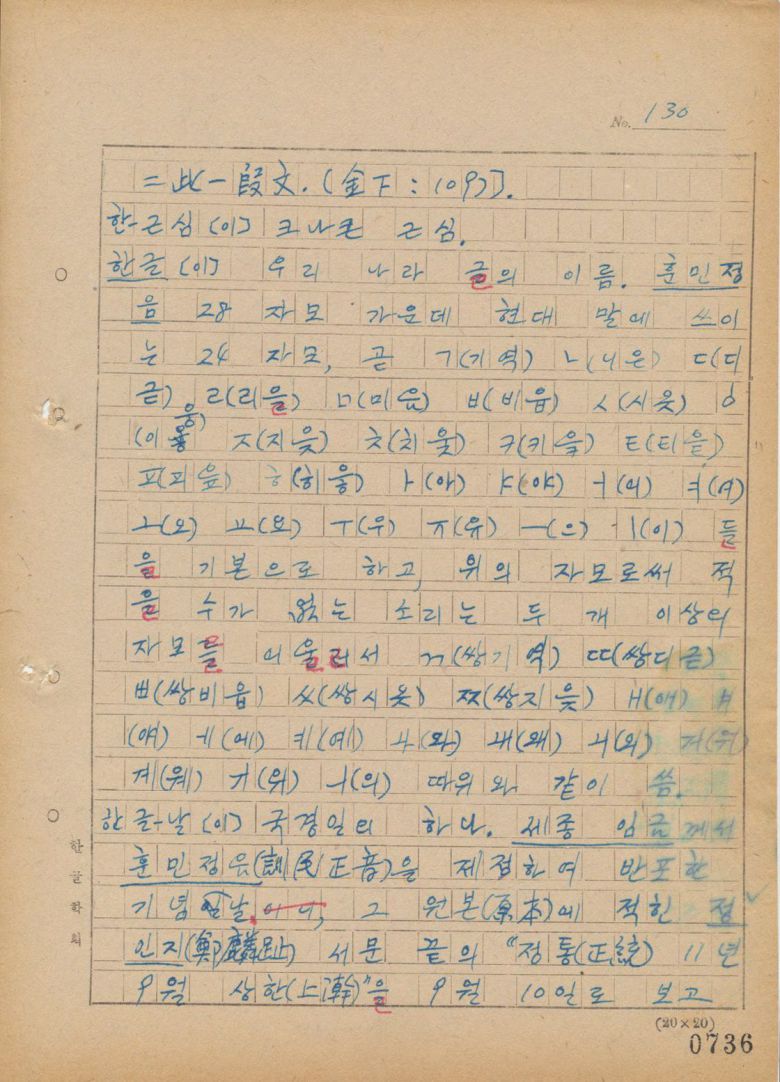 No. 130
= 此一段文. (金下 : 109)].
한-근심 (이) 크나큰 근심.
한글 (이) 우리 나라 글의 이름. 훈민정
음 28 자모 가운데 현대 말에 쓰이
는 24 자모, 곧 ㄱ(기역) ㄴ(니은) ㄷ(디
귿) ㄹ(리을) ㅁ(미음) ㅂ(비읍) ㅅ(시옷) ㅇ
(이응) ㅈ(지읒) ㅊ(치읓) ㅋ(키읔) ㅌ(티읕)
ㅍ(피읖) ㅎ(히읗) ㅏ(아) ㅑ(야) ㅓ(어) ㅕ(여)
ㅗ(오) ㅛ(요) ㅜ(우) ㅠ(유) ㅡ(으) ㅣ(이) 들
을 기본으로 하고, 위의 자모로써 적
을 수가 없는 소리는 두 개 이상의
자모를 어울러서 ㄲ(쌍기역) ㄸ(쌍디귿)
ㅃ(쌍비읍) ㅆ(쌍시옷) ㅉ(쌍지읒) ㅐ(애) ㅒ
(얘) ㅔ(에) ㅖ(예) ㅘ(와) ㅙ(왜) ㅚ(외) ㅝ(워)
ㅞ(웨) ㅟ(위) ㅢ(의) 따위와 같이 씀.
한글-날 (이) 국경일의 하나. 세종 임금께서
훈민정음(訓民正音)을 제정하여 반포한
기념날, 그 원본(原本)에 적힌 정
인지(鄭麟趾) 서문 끝의 "정통(正統) 11년
9월 상한(上澣)"을 9월 10일로 보고
한글학회
(20×20)
0736